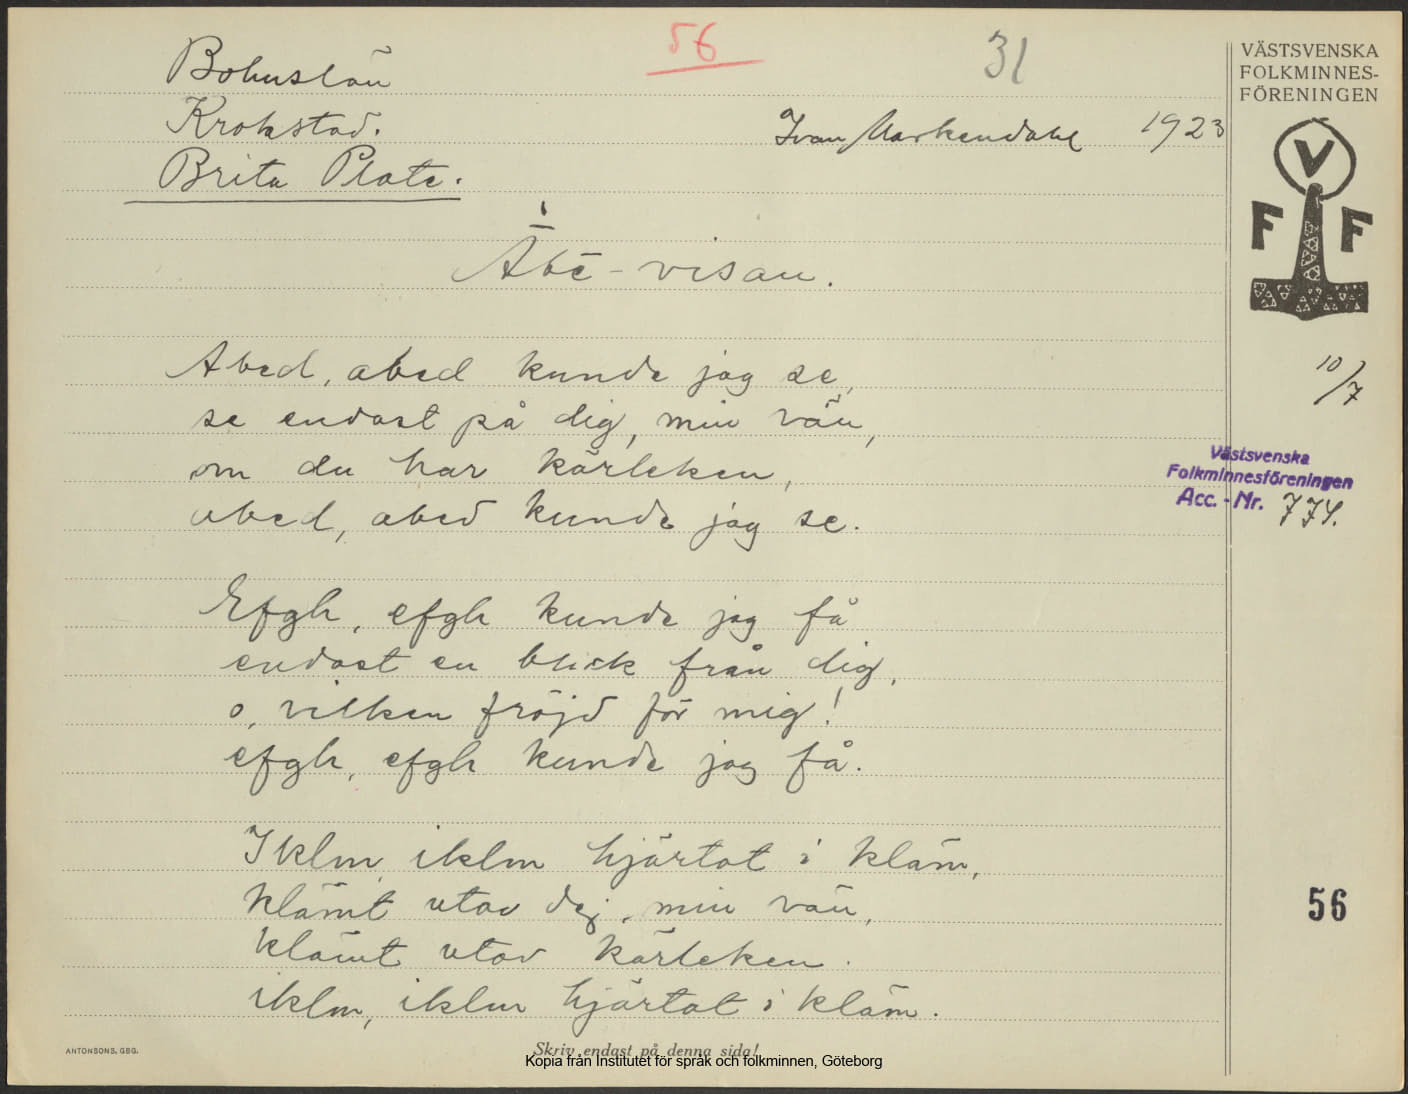 56
31
Bohuslän
Krokstad.
Ivan Markendahl 1923
Brita Plate.
Äbē-visan.
Abcd, abcd kunde jag se,
se endast på dig, min vän,
om du har kärleken,
abcd, abcd kunde jag se.
Efgh, efgh kunde jag få
endast en blick från dig,
o, vilken fröjd för mig!
efgh, efgh kunde jag få.
Iklm, iklm hjärtat i kläm,
klämt utav dej, min vän,
klämt utav kärleken.
iklm, iklm hjärtat i kläm.
VÄSTSVENSKA
FOLKMINNES-
FÖRENINGEN
V
F F
10/7
Västsvenska
Folkminnesföreningen
Acc.-Nr. 774.
56
ANTONSONS, GBG.
Skriv endast på denna sida!
Kopia från Institutet för språk och folkminnen, Göteborg